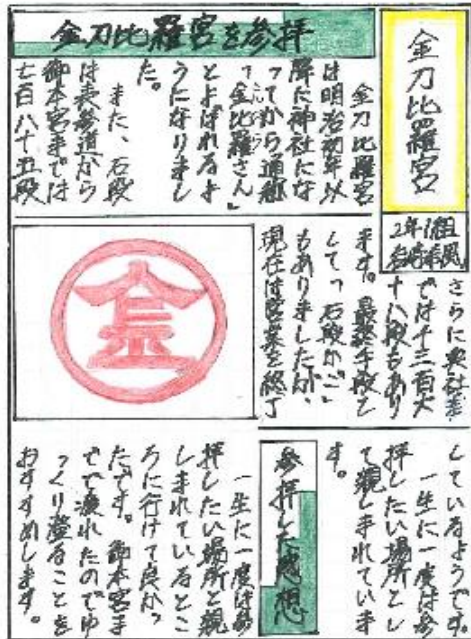 金刀比羅宮
2年1組
金刀比羅宮を参拝
金刀比羅宮
は明治初年以
降に神社にな
ってから通称
「金比羅さん」
とよばれるよ
うになりまし
た。
また、石段
は表参道から
御本宮までは
七百八十五段
さらに奥社ま
では千三百六
十八段もあり
ます。最終手段と
して「石段かご」
もありましたが、
現在は営業を終了
しているようです。
一生に一度は参
拝したい場所とし
て親しまれていま
す。
金
参拝した感想
一生に一度は参
拝したい場所と親
しまれているとこ
ろに行けて良かっ
たです。御本宮ま
でで疲れたのでゆ
っくり登ることを
おすすめします。